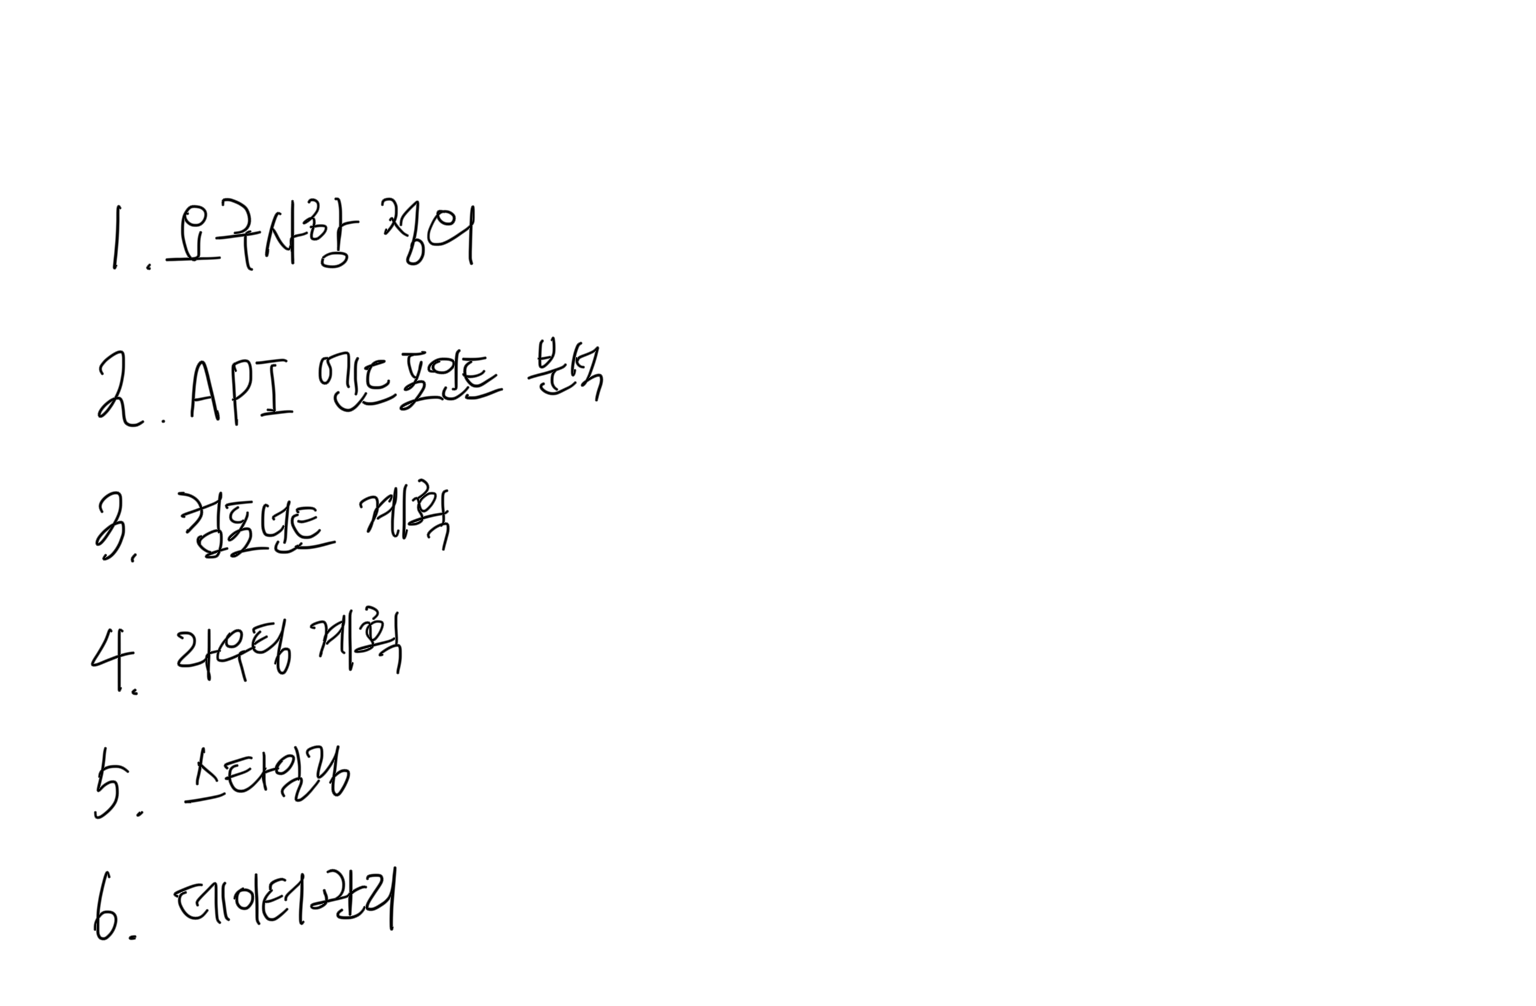 1. 요구사항 정의
2. API 엔드포인트 분석
3. 컴포넌트 계획
4. 라우팅 계획
5. 스타일링
6. 데이터관리